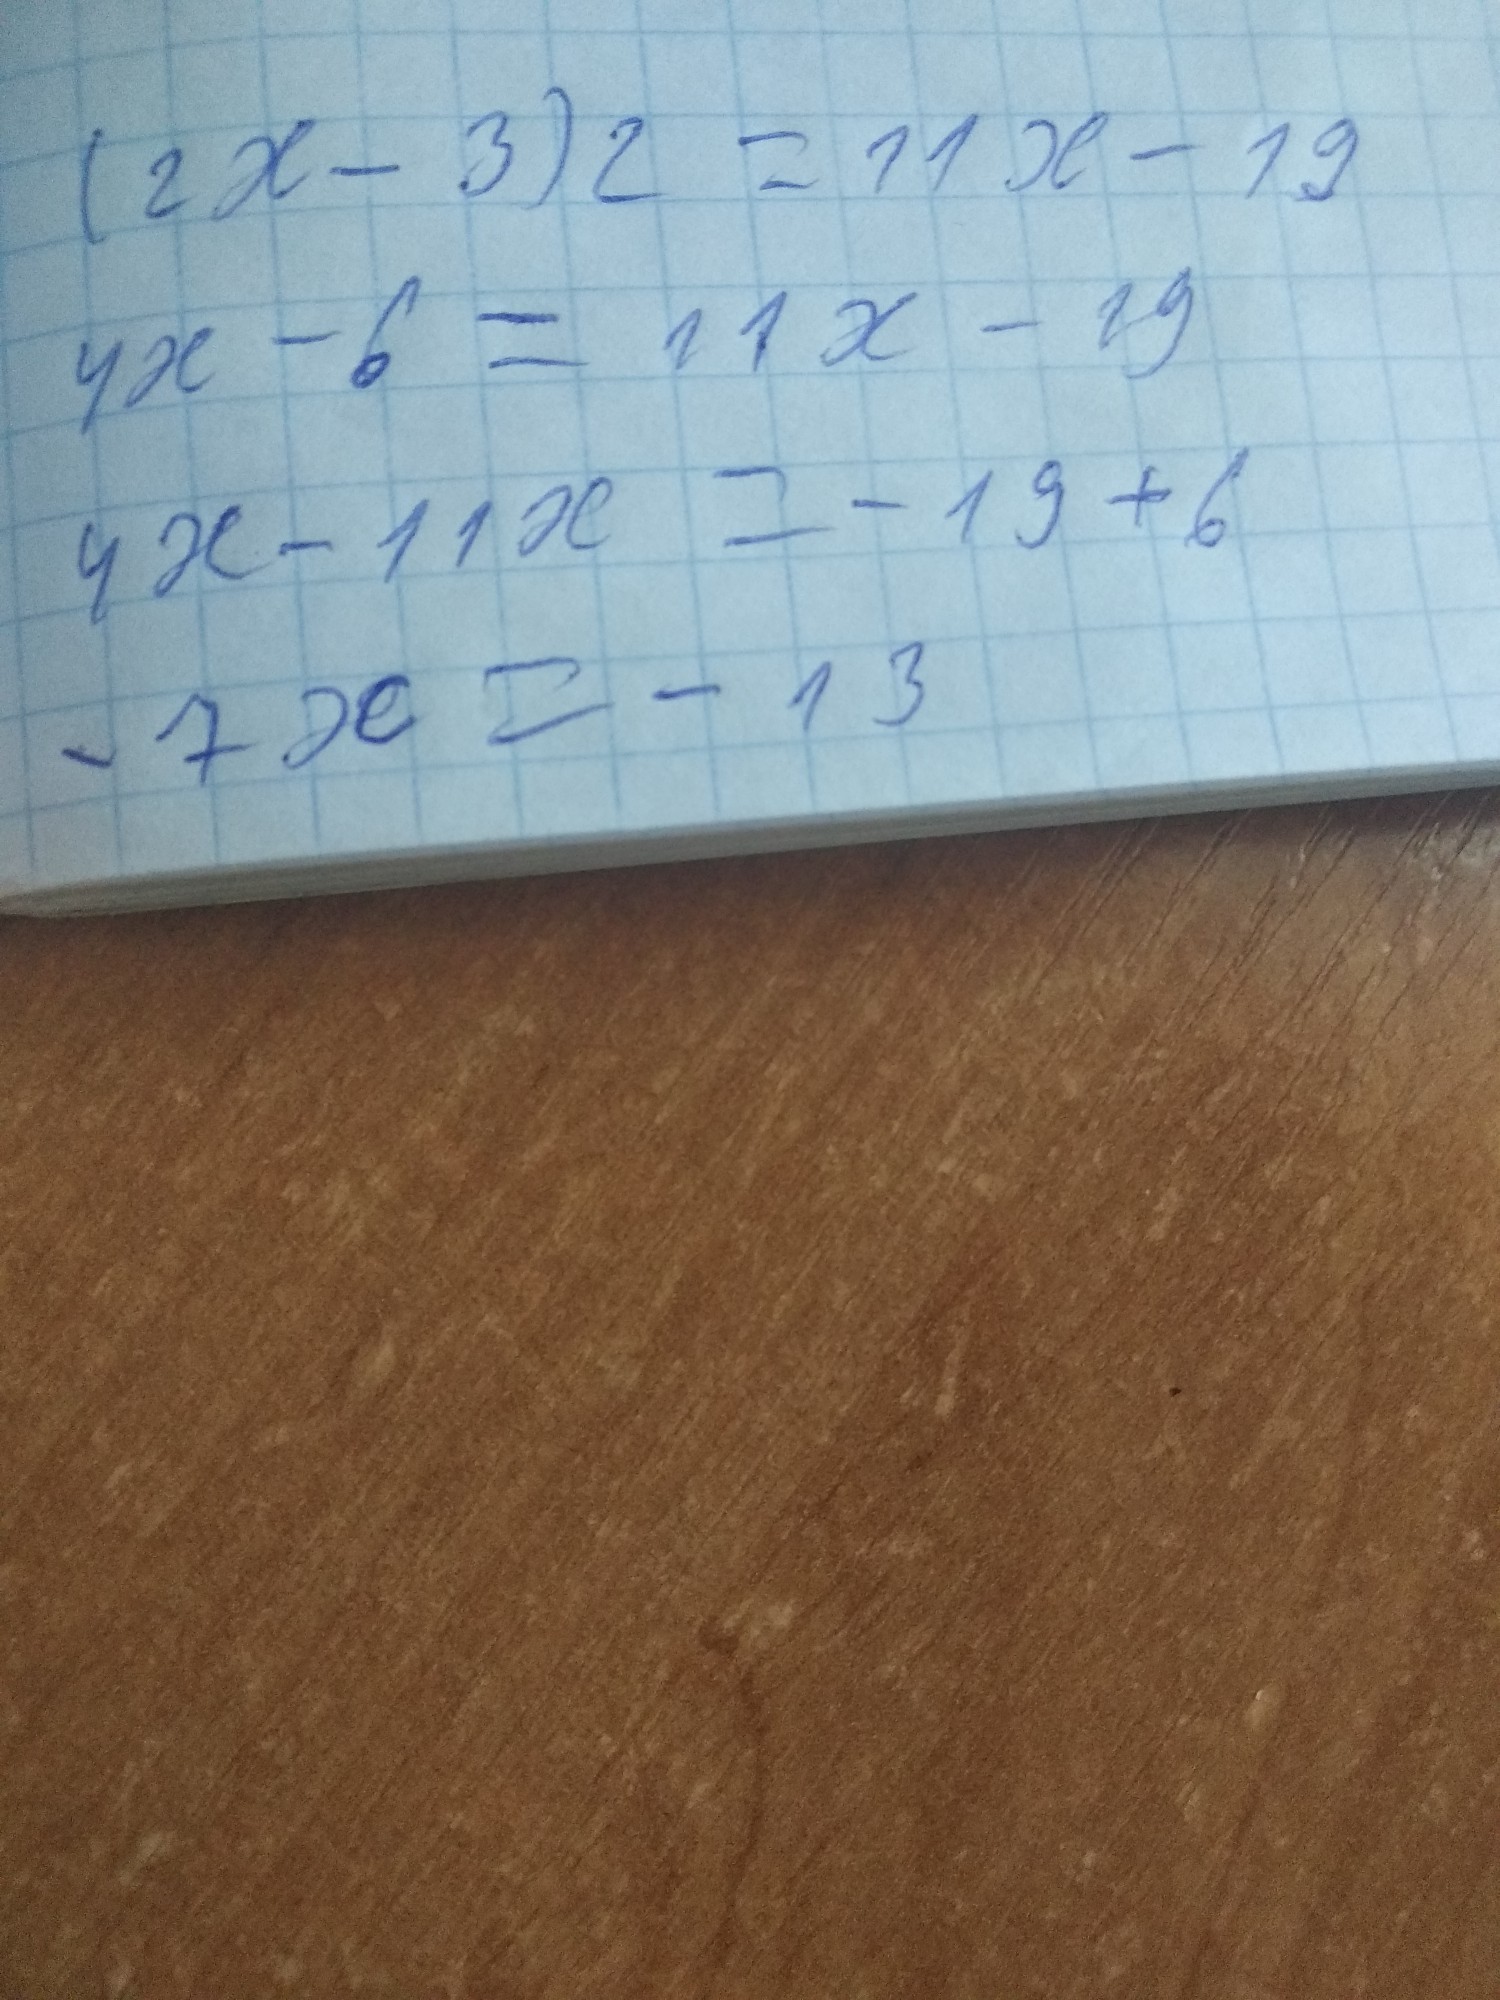 (2x - 3)2 = 11x - 19
4x - 6 = 11x - 19
4x - 11x = - 19 + 6
- 7x = - 13